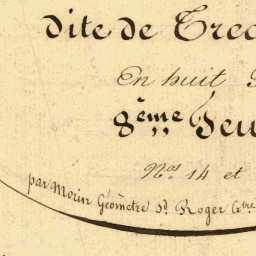 dite de Trec
En huit
8ème Feu
Nos 14 et
par Morin Géomètre Sr. Roger Ctre